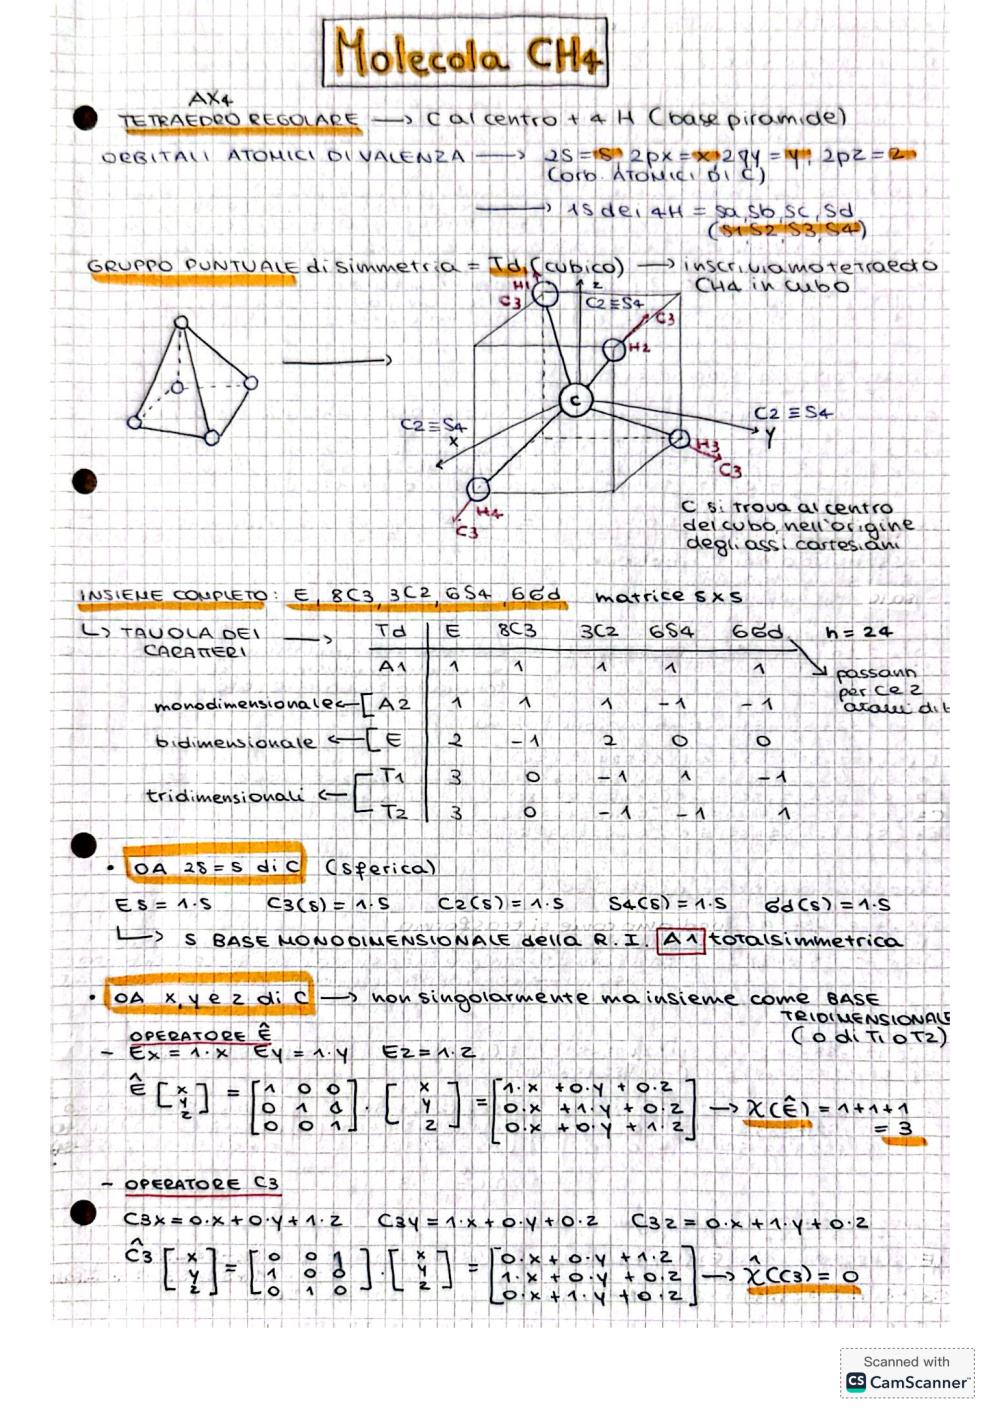 Molecola CH4
AX4
TETRAEDRO REGOLARE → C al centro + 4 H (base piramide)
ORBITALI ATOMICI DI VALENZA → 2S = S, 2px = x, 2py = y, 2pz = z
(orb. ATOMICI DI C)
→ 1S dei 4H = Sa, Sb, Sc, Sd
(S1, S2, S3, S4)
GRUPPO PUNTUALE di simmetria = Td (cubico) → inscriviamo tetraedro
CH4 in cubo
H1
C3
z
C2 ≡ S4
C3
H2
C
C2 ≡ S4
x
C2 ≡ S4
y
H3
C3
H4
C3
C si trova al centro
del cubo, nell'origine
degli assi cartesiani
INSIEME COMPLETO: E, 8C3, 3C2, 6S4, 6σd matrice 5x5
↳ TAVOLA DEI CARATTERI →
Td E 8C3 3C2 6S4 6σd h = 24
A1 1 1 1 1 1
passano
per C e 2
atomi di
monodimensionale ← [ A2 1 1 1 -1 -1
bidimensionale ← [ E 2 -1 2 0 0
T1 3 0 -1 1 -1
tridimensionali ← [
T2 3 0 -1 -1 1
• OA 2S = S di C (sferica)
ES = 1·S C3(S) = 1·S C2(S) = 1·S S4(S) = 1·S σd(S) = 1·S
↳ S BASE MONODIMENSIONALE della R.I. A1 totalsimmetrica
• OA x, y e z di C → non singolarmente ma insieme come BASE
TRIDIMENSIONALE
(o di T1 o T2)
OPERATORE Ê
- Ex = 1·x Ey = 1·y Ez = 1·z
Ê [x y z] = [1 0 0 0 1 0 0 0 1] · [x y z] = [1·x + 0·y + 0·z 0·x + 1·y + 0·z 0·x + 0·y + 1·z] → χ(Ê) = 1+1+1
= 3
- OPERATORE C3
C3x = 0·x + 0·y + 1·z C3y = 1·x + 0·y + 0·z C3z = 0·x + 1·y + 0·z
Ĉ3 [x y z] = [0 0 1 1 0 0 0 1 0] · [x y z] = [0·x + 0·y + 1·z 1·x + 0·y + 0·z 0·x + 1·y + 0·z] → χ̂(C3) = 0
Scanned with
CS CamScanner